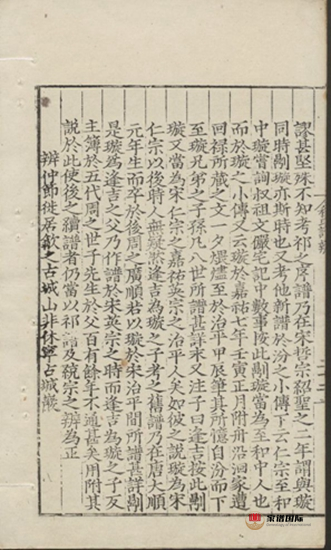 謬甚堅殊不知考祁之序譜乃在宋哲宗紹聖之二年謂與璇
同時剔璇亦斯時也又考他新譜於汾之小傳下云仁宗至和
中璇嘗詢叔祖文儼宅記中數事按此剔璇當為至和中人也
而於璇之小傳又云璇於嘉祐七年壬寅正月附舟沿洄家遭
回祿所藏之文一夕煨燼至於治平甲辰筆其所憶自汾而下
至璇兄弟之子孫凡八世所譜甚詳末又注子曰逢吉按此剔
璇又當為宋仁宗之嘉祐英宗之治平人矣如彼之說璇為宋
仁宗以後時人無疑然逢吉為璇之子考之舊譜乃在唐大順
元年生而卒於後周之廣順若以璇於宋治平間所譜甚詳剔
是璇為逢吉之父乃作譜於宋英宗之時而逢吉為璇之子反
主簿於五代周之世子先生於父百有餘年不通甚矣用附其
說於此使後之續譜者仍當以祁譜及競宗之辨為正
辨仲節徙居歙之古城山非休寧古城巖
家譜國際